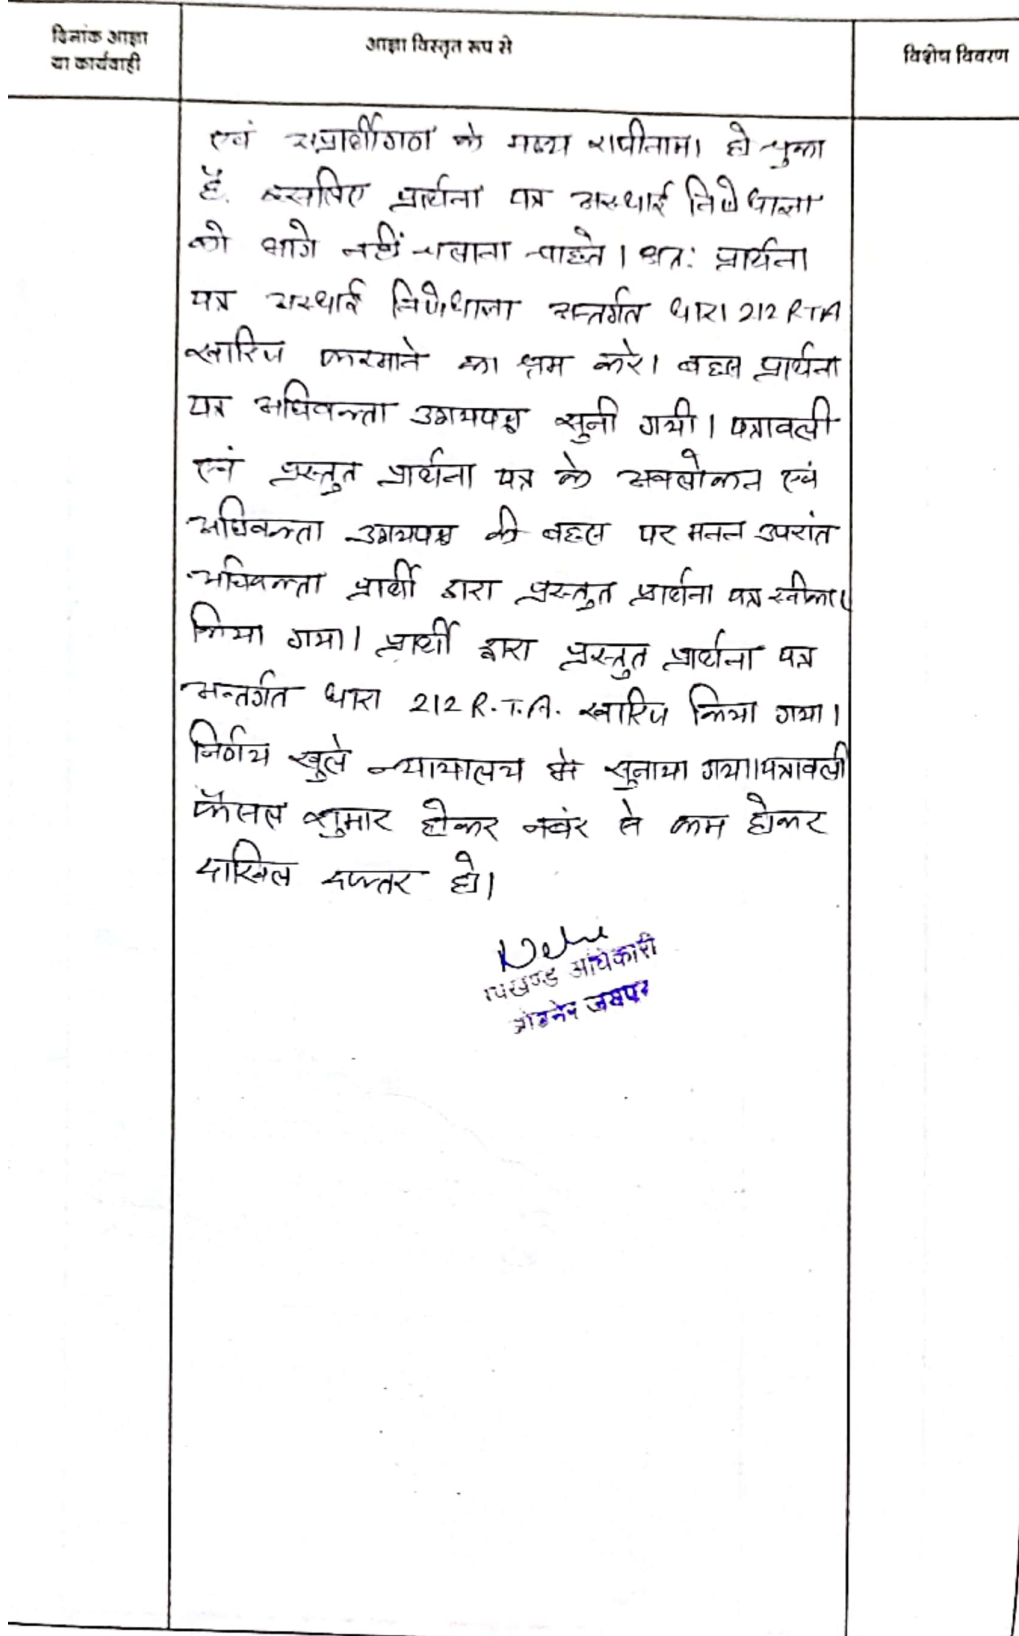 दिनांक आज्ञा
या कार्यवाही
आज्ञा विस्तृत रूप से
विशेष विवरण
एवं अप्रार्थीगण के मध्य राजीनामा हो चुका
है. इसलिए प्रार्थना पत्र अस्थाई निषेधाज्ञा
को आगे नहीं चलाना चाहते। अत: प्रार्थना
पत्र अस्थाई निषेधाज्ञा अन्तर्गत धारा 212 RTA
खारिज फरमाने का श्रम करे। बहस प्रार्थना
पत्र अधिवक्ता उभयपक्ष सुनी गयी। पत्रावली
एवं प्रस्तुत प्रार्थना पत्र के अवलोकन एवं
अधिवक्ता उभयपक्ष की बहस पर मनन उपरांत
अधिवक्ता प्रार्थी द्वारा प्रस्तुत प्रार्थना पत्र स्वीकार
किया गया। प्रार्थी द्वारा प्रस्तुत प्रार्थना पत्र
अन्तर्गत धारा 212 R.T.A. खारिज किया गया।
निर्णय खुले न्यायालय में सुनाया गया।पत्रावली
फैसल शुमार होकर नबंर से कम होकर
दाखिल दफ्तर हो।
उपखण्ड अधिकारी
जोबनेर जयपुर